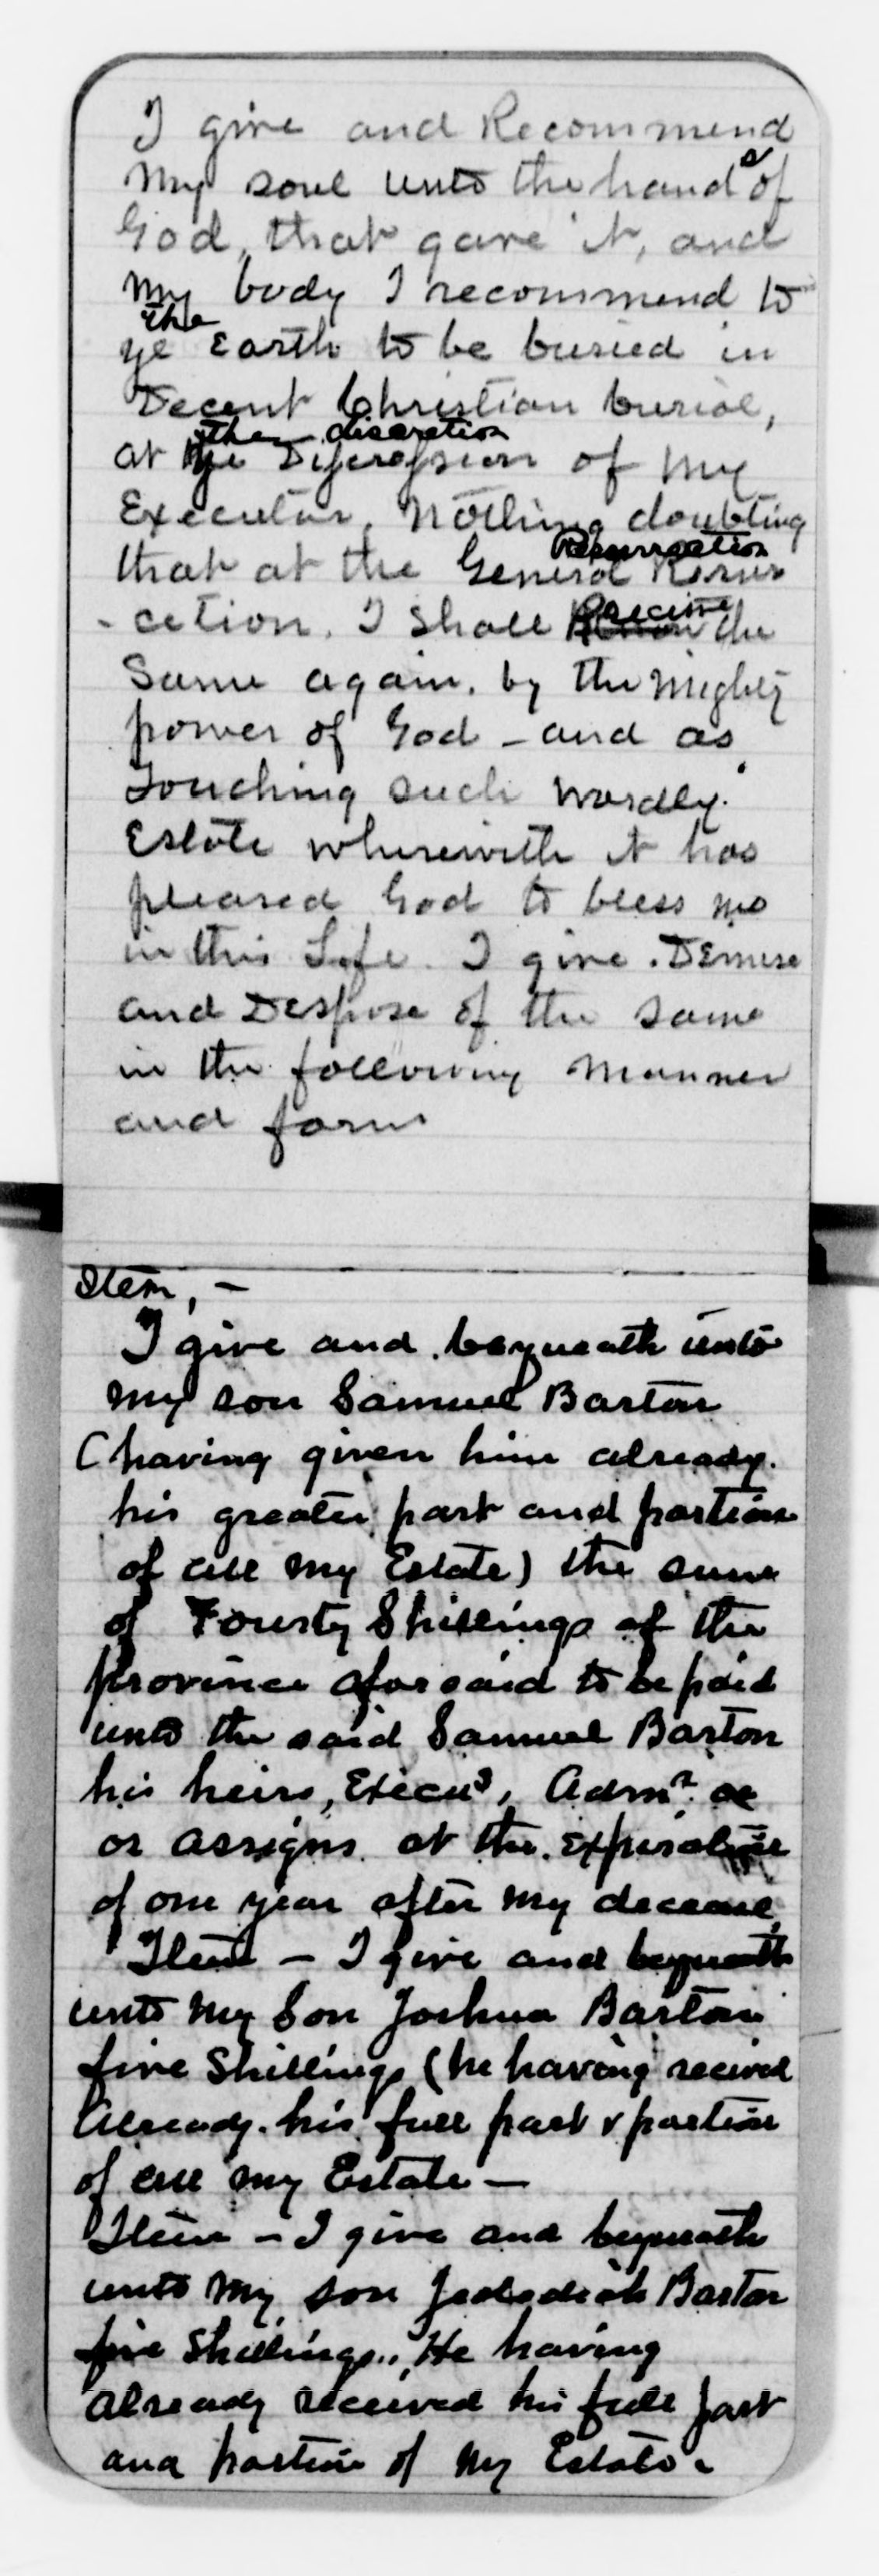 I give and Recommend
my soul unto the hands of
God, that gave it, and
my body I recommend to
the
ye Earth to be buried in
Decent Christian burial,
the discretion
at ye of my
Executor, nothing doubting
Resurrection
that at the General Resur
-cetion. I shall receive the
Same again, by the mighty
power of God - and as
touching such wordly.
Estate wherewith it has
pleased God to bless me
in this Life. I give. Demise
and Despose of the same
in the following manner
and form
Item, -
I give and bequeath unto
my son Samuel Barton
(having given him already.
his greater part and portion
of all my Estate) the sum
of Fourty Shillings of the
Province aforsaid to be paid
unto the said Samuel Barton
his heirs, Execus, Admr. or
or assigns at the. expiration
of one year after my decease
Item - I give and bequeath
unto my Son Joshua Barton
five Shillings (he having recived
Already. his full part & portion
of all my Estate -
Item - I give and bequeath
unto my son Jedediah Barton
five Shillings., He having
already received his full part
and portion of my Estate.